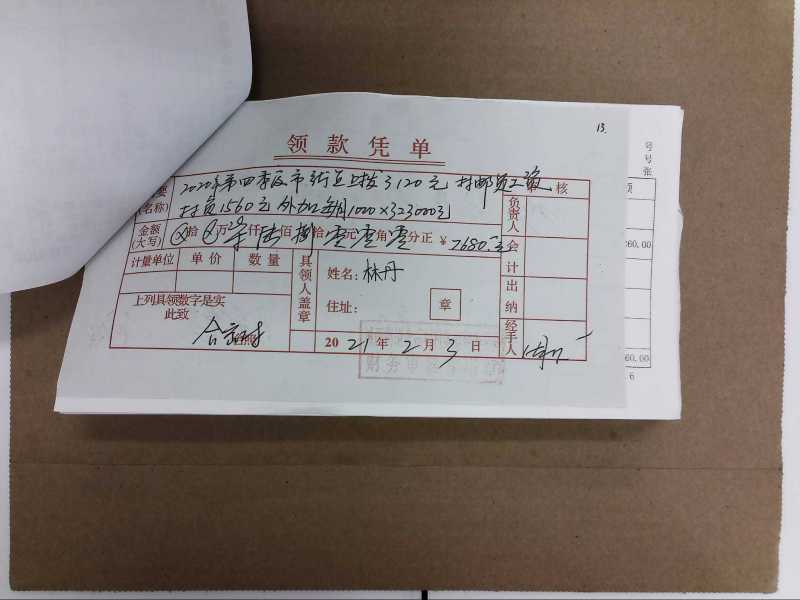 13.
领款凭单
2020年第四季度市街道上拨3120元 村邮员工资
(名称) 村员1560元 外加每月1000×3=3000元
金额(大写) 拾 万 柒 仟 陆 佰 捌 拾 零 元 零 角 零 分正 ¥ 7680元
计量单位 单价 数量
具领人盖章
姓名: 林丹
住址: 章
上列具领数字是实
此致
2021年2月3日
审核
负责人
会计
出纳
经手人
号
号
张
260.00
260.00
6